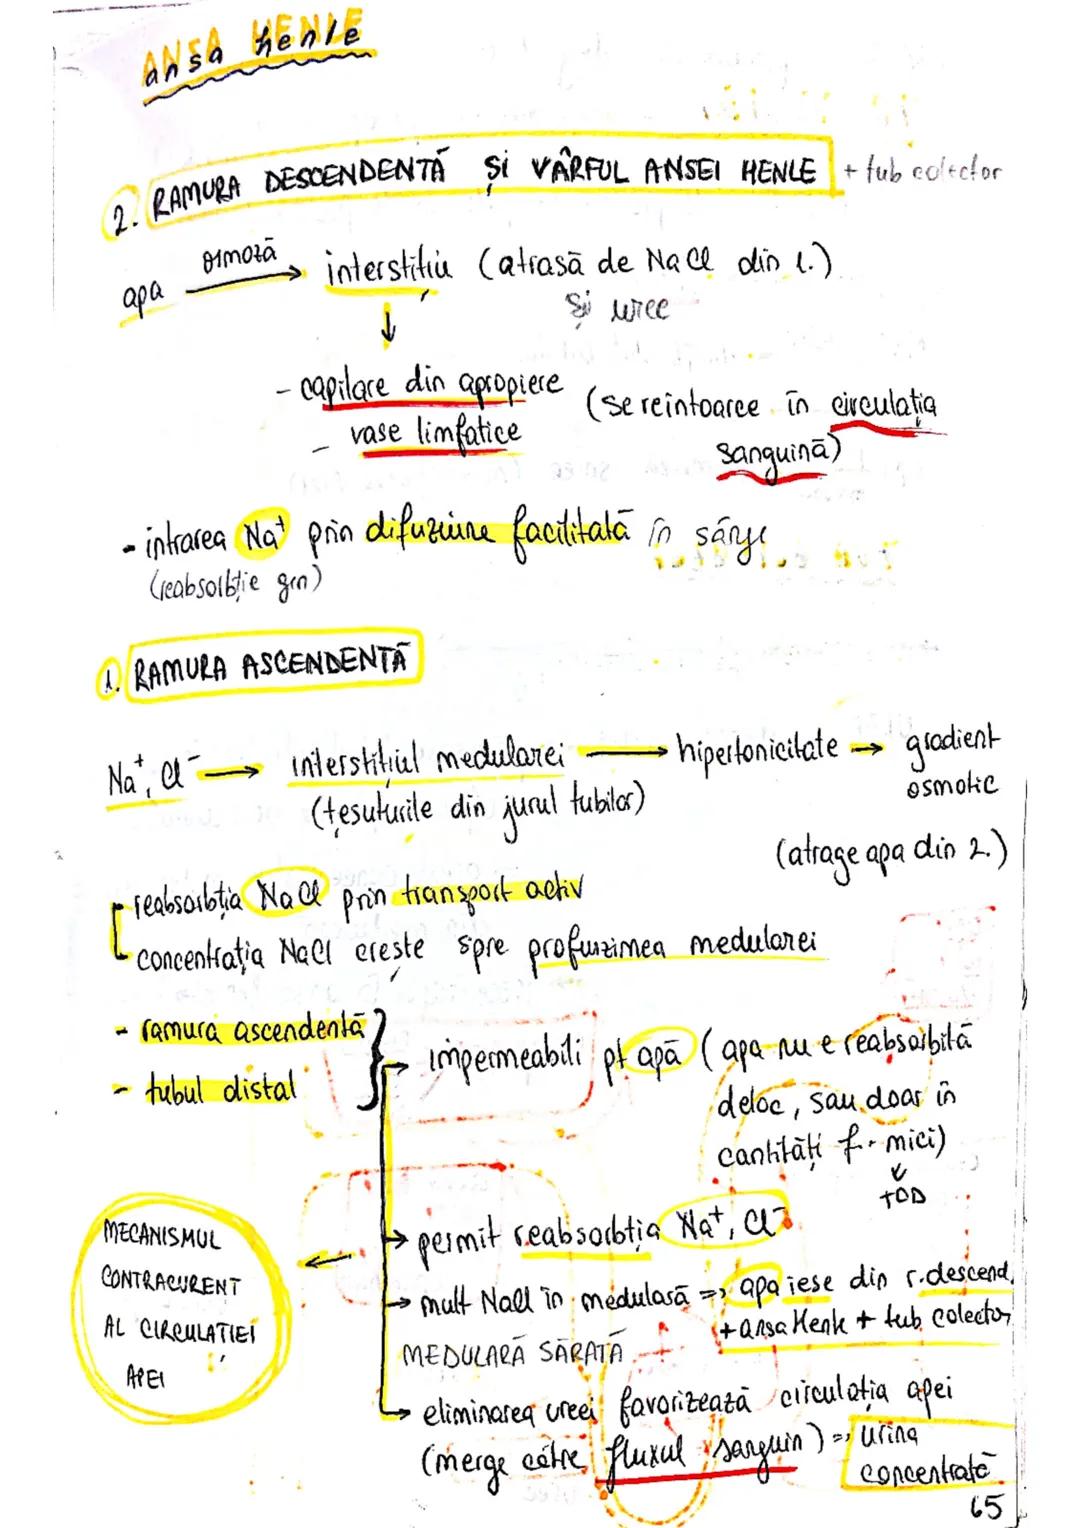 ANSA HENLE
ansa henle
2. RAMURA DESCENDENTĂ ȘI VÂRFUL ANSEI HENLE + tub colector
apa osmoză → interstițiu (atrasă de NaCl din 1.)
și uree
↓
- capilare din apropiere (se reîntoarce în circulația
- vase limfatice sanguină)
- intrarea Na⁺ prin difuziune facilitată în sânge
(reabsorbție gen)
1. RAMURA ASCENDENTĂ
Na⁺, Cl⁻ → interstițiul medularei → hipertonicitate → gradient
osmotic
(țesuturile din jurul tubilor)
(atrage apa din 2.)
reabsorbția NaCl prin transport activ
concentrația NaCl crește spre profunzimea medularei
- ramura ascendentă
- tubul distal
→ impermeabili pt apă (apa nu e reabsorbită
deloc, sau doar în
cantități f. mici)
↓
TCD
→ permit reabsorbția Na⁺, Cl⁻
→ mult NaCl în medulară => apa iese din r. descend.
+ ansa Henle + tub colector
MEDULARĂ SĂRATĂ
→ eliminarea ureei favorizează circulația apei
(merge către fluxul sanguin) => urina
concentrată
MECANISMUL
CONTRACURENT
AL CIRCULAȚIEI
APEI
65